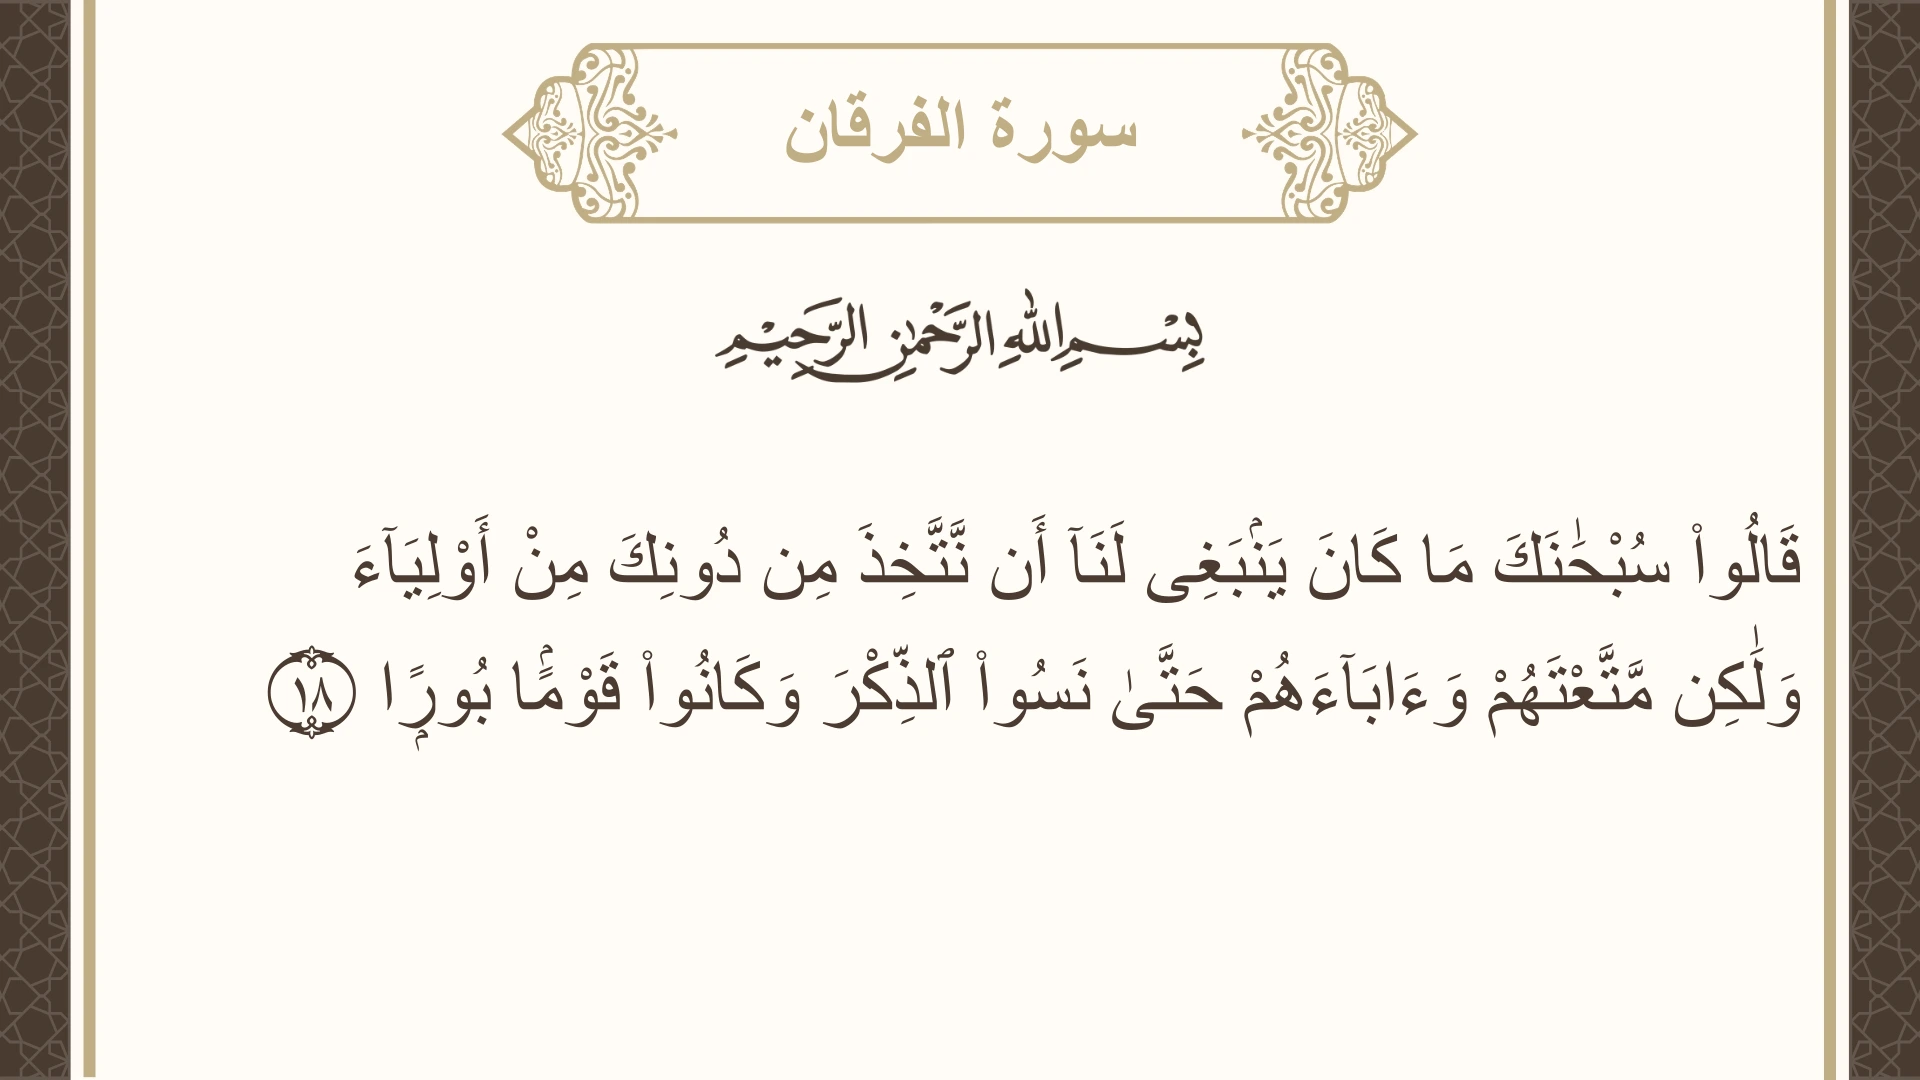 سورة الفرقان
بِسْمِ اللهِ الرَّحْمٰنِ الرَّحِيْمِ
قَالُوا۟ سُبْحَٰنَكَ مَا كَانَ يَنۢبَغِى لَنَآ أَن نَّتَّخِذَ مِن دُونِكَ مِنْ أَوْلِيَآءَ
وَلَٰكِن مَّتَّعْتَهُمْ وَءَابَآءَهُمْ حَتَّىٰ نَسُوا۟ ٱلذِّكْرَ وَكَانُوا۟ قَوْمًۢا بُورًۭا ١٨